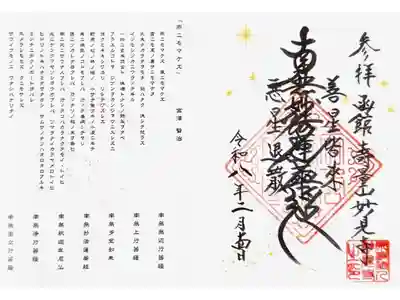 参拝 函館
妙見寺
善星皆来
南無妙法蓮華経
悪星退散
令和八年二月吉日
「雨ニモマケズ」 宮澤 賢治
雨ニモマケズ 風ニモマケズ
雪ニモ夏ノ暑サニモマケヌ
丈夫ナカラダヲモチ 慾ハナク 決シテ瞋ラズ
イツモシヅカニワラッテヰル
一日ニ玄米四合ト 味噌ト少シノ野菜ヲタベ
アラユルコトヲ ジブンヲカンジョウニ入レズニ
ヨクミキキシワカリ ソシテワスレズ
野原ノ松ノ林ノ蔭ノ 小サナ萱ブキノ小屋ニヰテ
東ニ病気ノコドモアレバ 行ッテ看病シテヤリ
西ニツカレタ母アレバ 行ッテソノ稲ノ束ヲ負ヒ
南ニ死ニサウナ人アレバ 行ッテコハガラナクテモイヽトイヒ
北ニケンクヮヤソショウガアレバ ツマラナイカラヤメロトイヒ
ヒデリノトキハナミダヲナガシ サムサノナツハオロオロアルキ
ミンナニデクノボートヨバレ
ホメラレモセズ クニモサレズ
サウイフモノニ ワタシハナリタイ
南無無辺行菩薩
南無上行菩薩
南無多宝如来
南無妙法蓮華経
南無釈迦牟尼仏
南無浄行菩薩
南無安立行菩薩